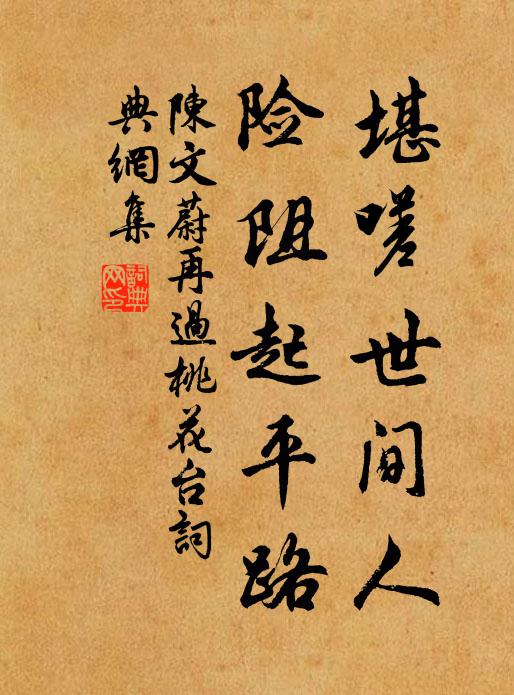 堪嗟世间人
险阻起平路
陳文蔚再過桃花台詞
典網集
詞典
网印